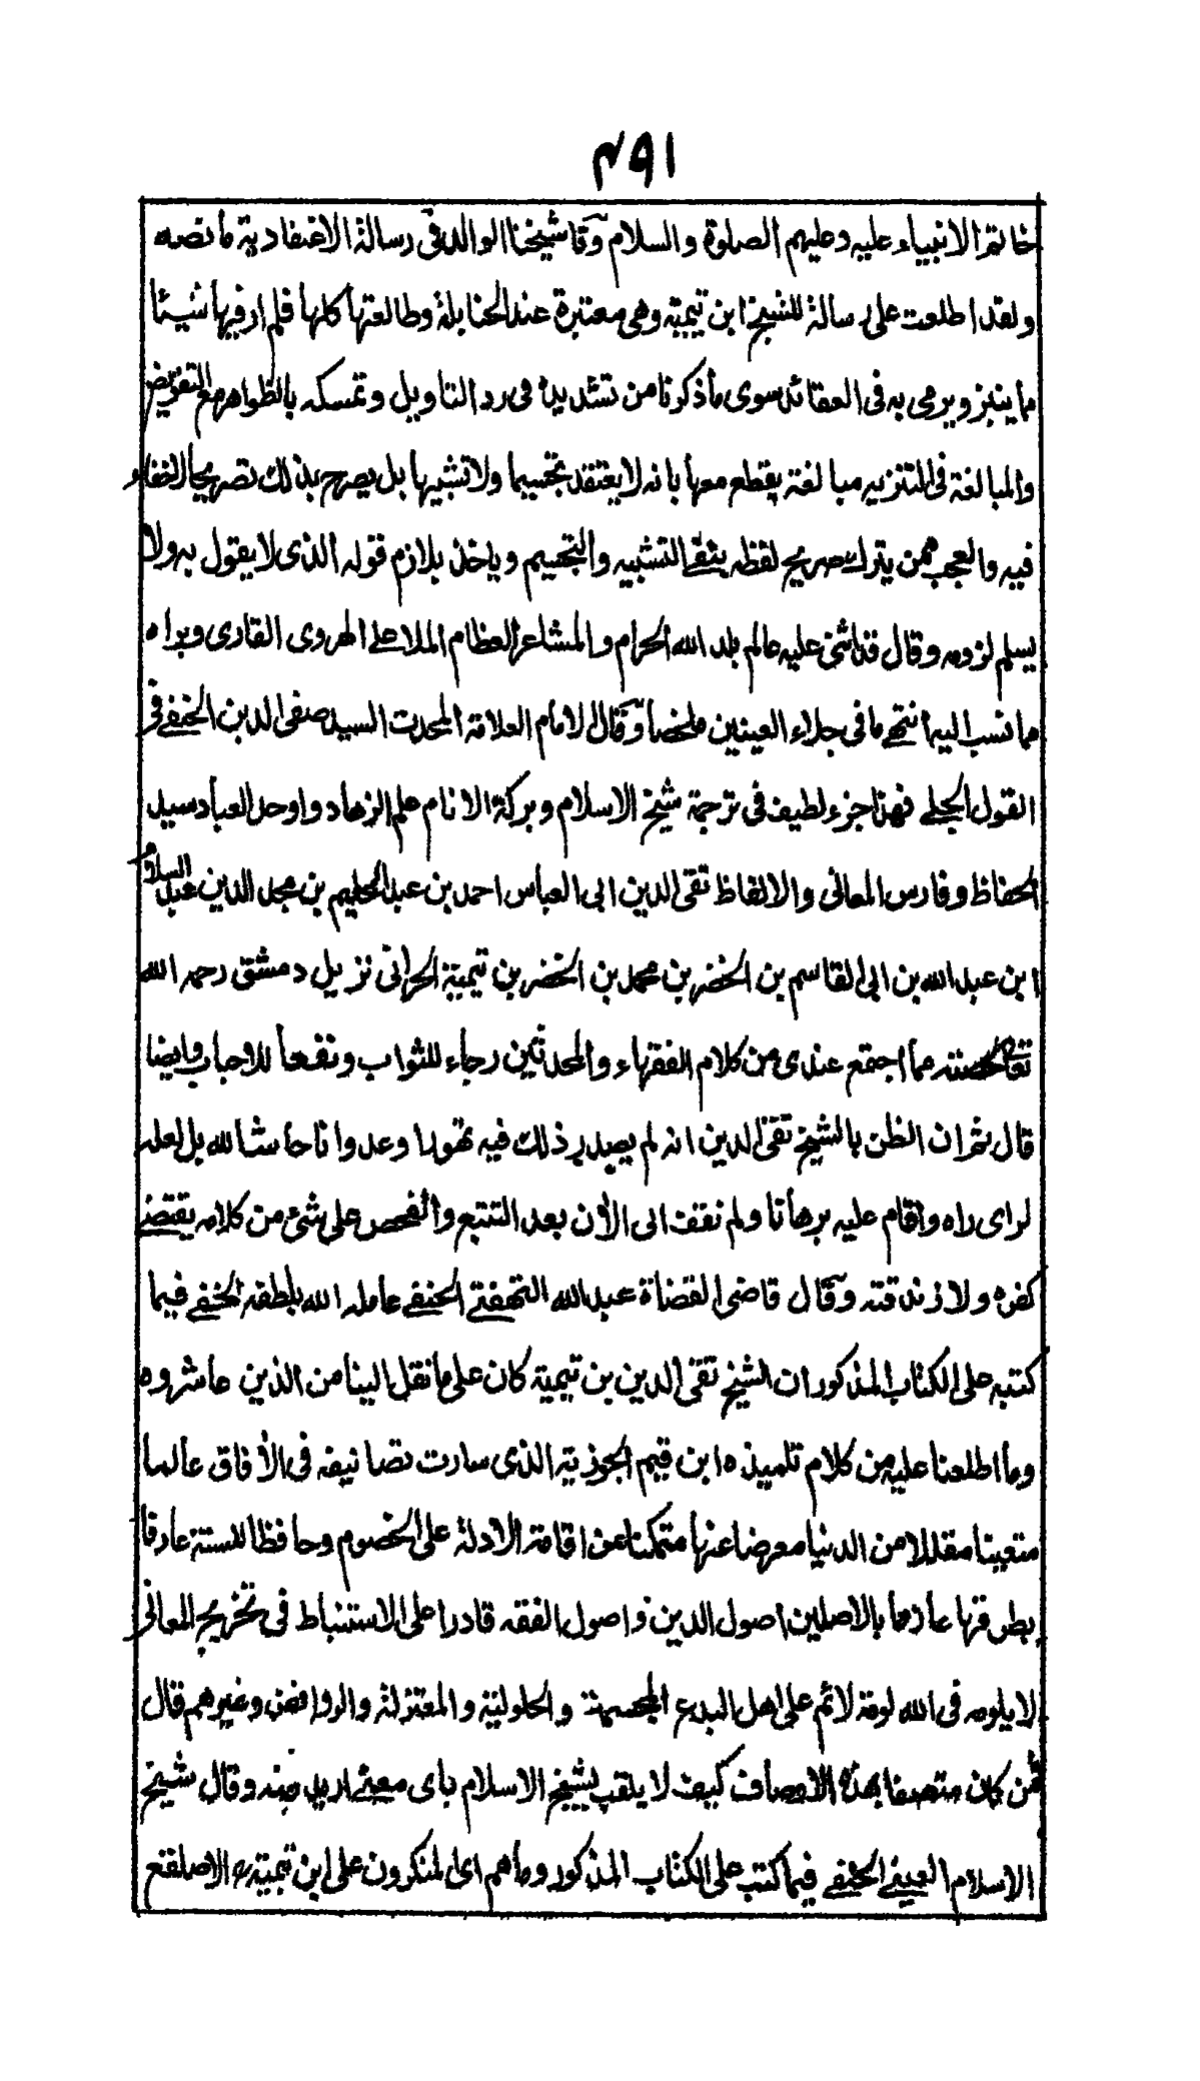 ۴۹۱
خاتم الانبياء عليه وعليهم الصلوة والسلام وقال شيخنا الوالد فى رسالة الاعتقادية ما نصه
ولقد اطلعت على رسالة للشيخ ابن تيمية وهى معتبرة عند الحنابلة وطالعتها كلها فلم ار فيها شيئا
مما ينبز ويرمى به فى العقائد سوى ما ذكرنا من تشديده فى رد التاويل وتمسكه بالظواهر مع التفويض
والمبالغة فى التنزيه مبالغة يقطع معها بانه لا يعتقد تجسيما ولا تشبيها بل يصرح بذلك تصريحا لاخفاء
فيه والعجب ممن يترك صريح لفظه بنفى التشبيه والتجسيم وياخذ بلازم قوله الذى لا يقول به ولا
يسلم لزومه وقال قد اثنى عليه عالم بلد الله الحرام والمشاعر العظام الملا على الهروى القارى وبراه
مما نسب اليه انتهى ما فى جلاء العينين ملخصا وقال الامام العلامة المحدث السيد صفى الدين الحنفى فى
القول الجلى فهذا جزء لطيف فى ترجمة شيخ الاسلام وبركة الانام علم الزهاد واوحد العباد سيد
الحفاظ وفارس المعانى والالفاظ تقى الدين ابى العباس احمد بن عبد الحليم بن مجد الدين عبد السلام
ابن عبد الله بن ابى القاسم بن الخضر بن محمد بن الخضر بن تيمية الحرانى نزيل دمشق رحمه الله
تعالى لخصته مما اجتمع عندى من كلام الفقهاء والمحدثين رجاء للثواب ونفعا للاحباب وايضا
قال ثم ان الظن بالشيخ تقى الدين انه لم يصدر ذلك فيه تهورا وعدوانا حاشا لله بل لعله
لراى راه واقام عليه برهانا ولم نقف الى الأن بعد التتبع والفحص على شئ من كلامه يقتضى
كفره ولا زندقته وقال قاضى القضاة عبد الله التفهنى الحنفى عامله الله بلطفه الخفى فيما
كتبه على الكتاب المذكور ان الشيخ تقى الدين بن تيمية كان على ما نقل الينا من الذين عاشروه
وما اطلعنا عليه من كلام تلميذه ابن قيم الجوزية الذى سارت تصانيفه فى الأفاق عالما
متعبدا مقللا من الدنيا معرضا عنها متمكنا من اقامة الادلة على الخصوم وحافظا للسنة عارفا
بطرقها عازما بالاصلين اصول الدين واصول الفقه قادرا على الاستنباط فى تخريج المعانى
لا يلومه فى الله لومة لائم على اهل البدع المجسمة والحلولية والمعتزلة والروافض وغيرهم قال
فمن كان متصفا بهذه الاوصاف كيف لا يلقب بشيخ الاسلام باى معنى اريد منه وقال شيخ
الاسلام العينى الحنفى فيما كتب على الكتاب المذكور وما هم اى المنكرون على ابن تيمية رح الا صلقع